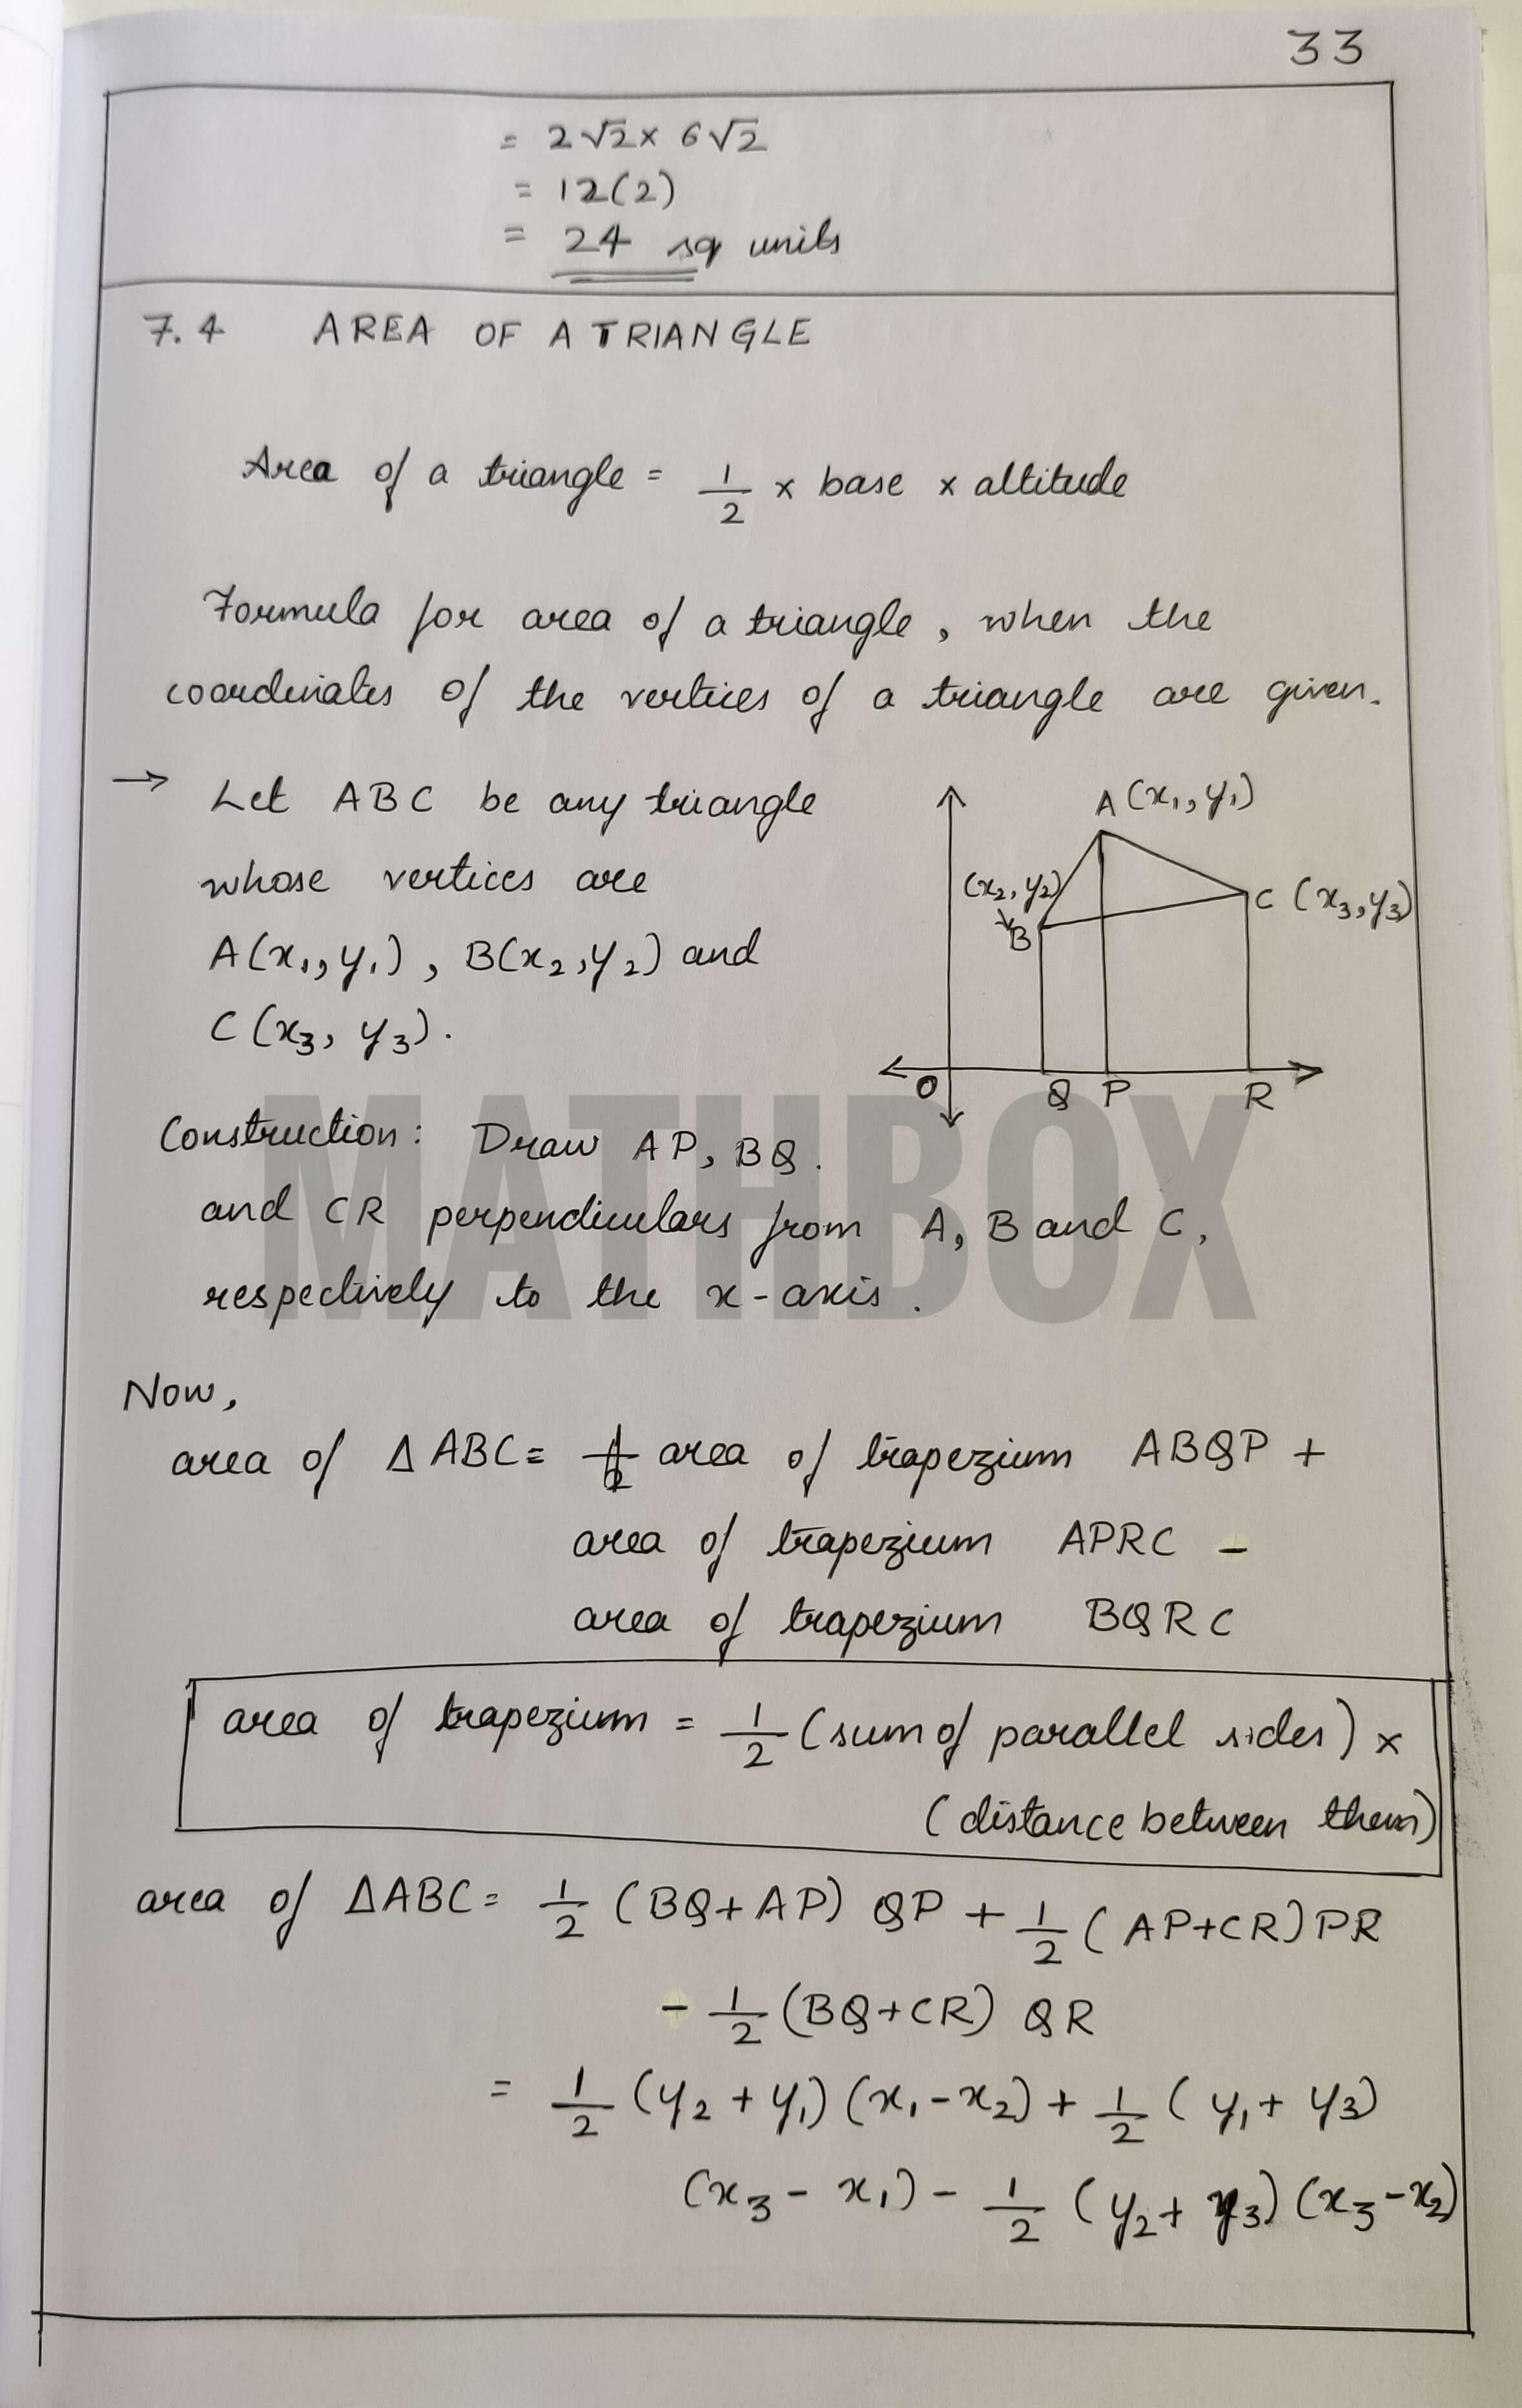 33
= 2√2 × 6√2
= 12(2)
= 24 sq units
7.4 AREA OF A TRIANGLE
Area of a triangle = 1/2 × base × altitude
Formula for area of a triangle, when the
coordinates of the vertices of a triangle are given.
→ Let ABC be any triangle
whose vertices are
A(x₁, y₁), B(x₂, y₂) and
C(x₃, y₃).
A(x₁, y₁)
(x₂, y₂)
B
C (x₃, y₃)
O Q P R
MATHBOX
Construction: Draw AP, BQ.
and CR perpendiculars from A, B and C,
respectively to the x-axis.
Now,
area of ΔABC = area of trapezium ABQP +
area of trapezium APRC -
area of trapezium BQRC
area of trapezium = 1/2 (sum of parallel sides) ×
(distance between them)
area of ΔABC = 1/2 (BQ+AP) QP + 1/2 (AP+CR) PR
- 1/2 (BQ+CR) QR
= 1/2 (y₂ + y₁) (x₁ - x₂) + 1/2 (y₁ + y₃)
(x₃ - x₁) - 1/2 (y₂ + y₃) (x₃ - x₂)